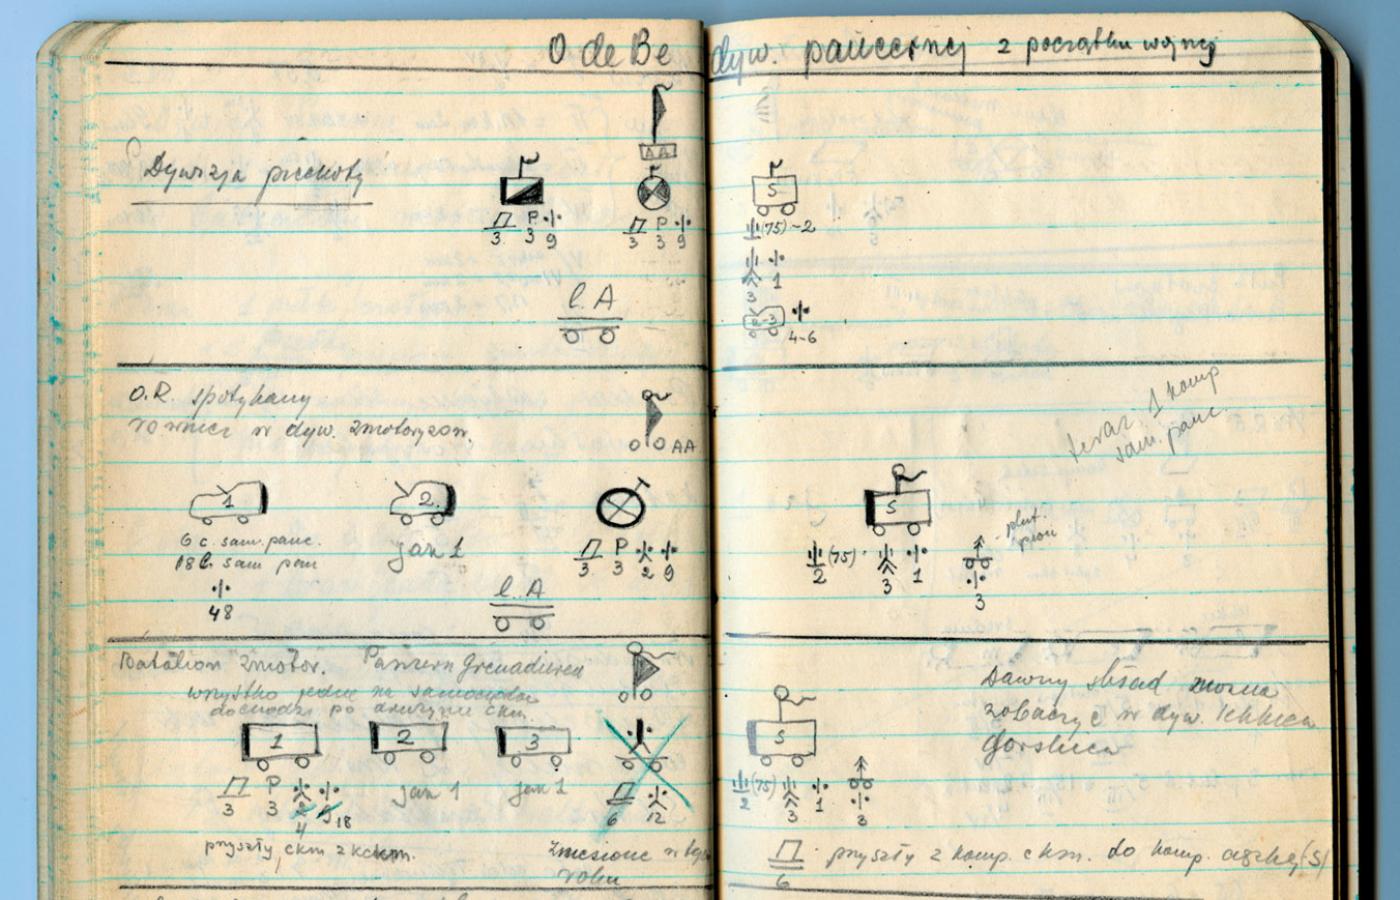 O de Be dyw. pancernej z początku wojny
Dywizja piechoty
AA
S
3 3 9
P
3 3 9
P
(75)-2
3 1
4-6
l. A
O.R. spotykany
również w dyw. zmotoryzow.
AA
teraz 1 komp
sam. panc.
1
2
S
6 c. sam. panc.
18 l. sam pan
48
jak 1
P
3 3 2 9
(75)
2 3 1
plut.
pion
3
l. A
Batalion zmotor. Panzern Grenadieren
wszystko jedzie na samochodach
dochodzi po drużynie ckm.
1
2
3
S
Dawny skład można
zobaczyć w dyw.
P
3 3 4 18
jak 1
jak 1
6 12
(75)
2 3 1
3
przyszły ckm z kckm.
Zniesione w tym
roku
6
przyszły z komp. ckm. do komp. (S)